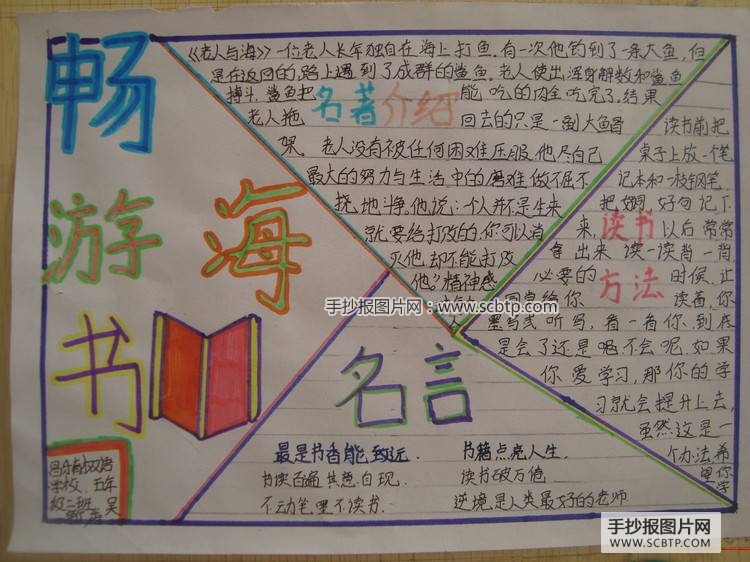 畅
游
书
海
《老人与海》一位老人长年独自在海上打鱼.有一次他钓到了一条大鱼,但
是在返回的路上遇到了成群的鲨鱼.老人使出浑身解数和鲨鱼
搏斗.鲨鱼把能吃的肉全吃完了.结果
老人拖回去的只是一副大鱼骨
架。老人没有被任何困难压服.他尽自己
最大的努力与生活中的磨难做不屈不
挠地斗争.他说:一个人并不是生来
就要给打败的.你可以消
灭他.却不能打败
他。"精神感
名著介绍
读书前把
桌子上放一个笔
记本和一枝钢笔.
把好词,好句记下
来,以后常常
拿出来读一读背一背.
必要的时候,让
同桌给你读着,你
默写或听写,看一看你到底
是会了还是
不会呢.如果
你爱学习,那你的学
习就会提升上去,
虽然这是一
个办法希
望你学
读书
方法
名言
最是书香能致远.
书读百遍 其意自现.
不动笔墨不读书.
书籍点亮人生.
读书破万倦.
逆境是人类最好的老师
学校.五年
级二班 吴
手抄报图片网:www.scbtp.com
手抄报图片网
WWW.SCBTP.COM